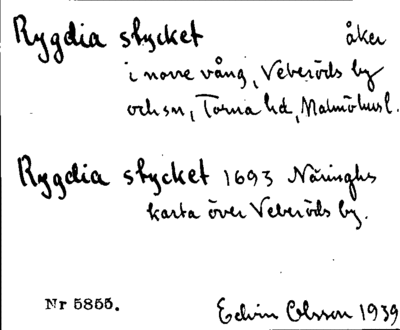 Rygdia stycket åker
i norre vång, Veberöds by
och sn, Torna hd, Malmöhus l.
Rygdia stycket 1693 Næringhs
karta över Veberöds by.
Nr 5855. Edvin Olsson 1939